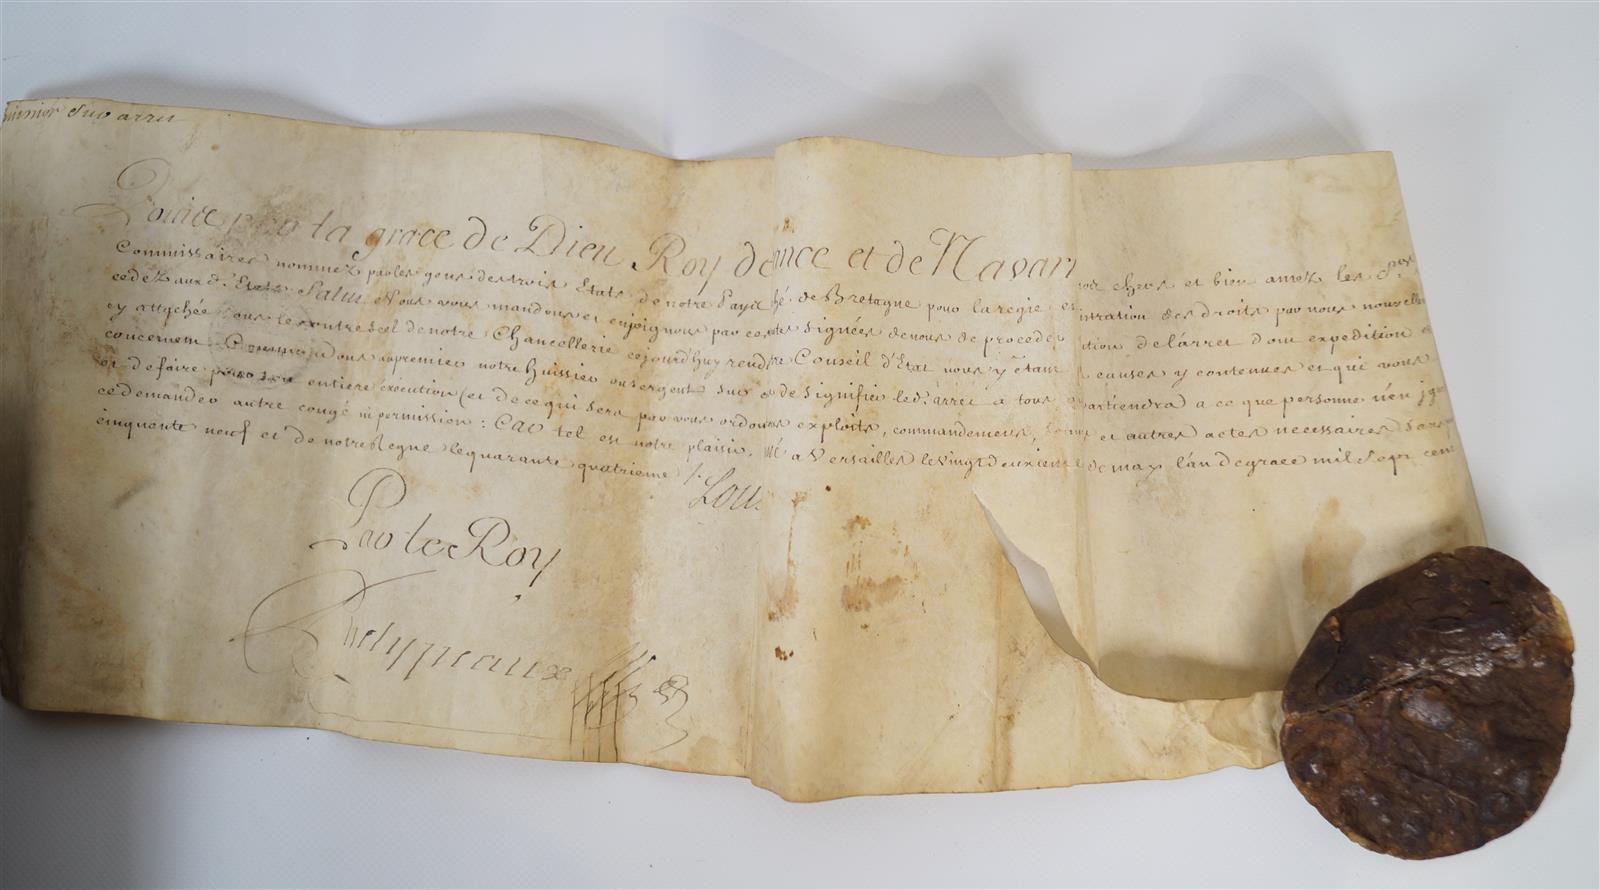 sur arret
Louis par la grace de Dieu Roy de ance et de Navarr
Commissaires nommez par les gens des trois Etats de notre Pays hé de Bretagne pour la regie et ntration des droits par nous nouvelle
cedéz aux d. Etats Salut Nous vous mandons et enjoignons par ces signées de nous de proceder ition de l'arret dont expedition e
cy attachée sous le contrescel de notre Chancellerie cejourd'huy rend Conseil d'Etat nous y étant causes y contenues et qui vous
concernent Commandons au premier notre huissier ou sergent sur de signifier led. arret a tous qu artiendra a ce que personne n'en
et de faire pour son entiere execution (et de ce qui sera par vous ordon exploits, commandemens, et autres actes necessaires sans
ce demander autre congé ni permission: Car tel est notre plaisir. a Versailles le vingt deuxieme de may l'an de grace mil sept cent
cinquante neuf et de notre Regne le quarante quatrieme /.
Lou
Par le Roy
Phelypeaux